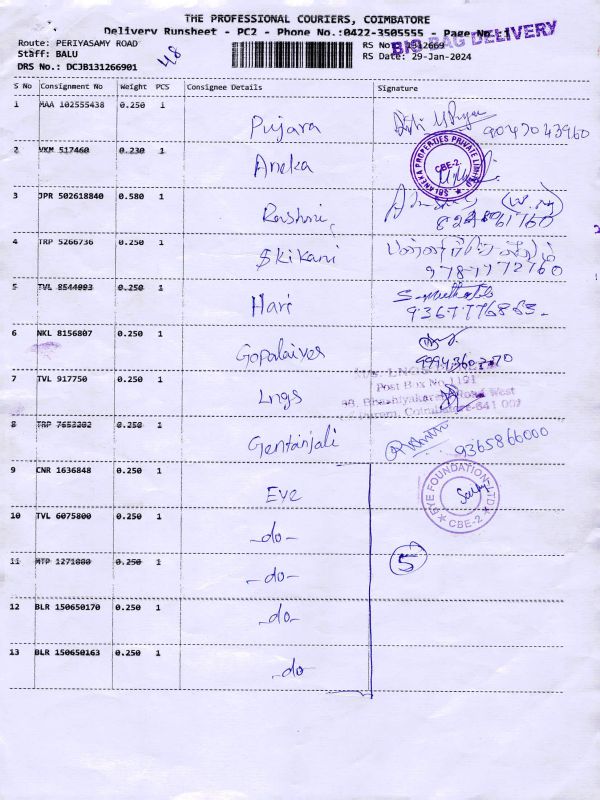 THE PROFESSIONAL COURIERS, COIMBATORE
Delivery Runsheet - PC2 - Phone No.:0422-3505555 - Page No.:1
BIG BAG DELIVERY
Route: PERIYASAMY ROAD
RS No: 1312669
Staff: BALU
RS Date: 29-Jan-2024
DRS No.: DCJB131266901
48
S No Consignment No Weight PCS Consignee Details Signature
1 MAA 102555438 0.250 1 Pujara 9047043960
2 VKM 517460 0.230 1 Aneka
SRI ANEKA PROPERTIES PRIVATE LIMITED
CBE-2
3 JPR 502618840 0.580 1 Rashmi
4 TRP 5266736 0.250 1 Skikani
9787772760
5 TVL 8544093 0.250 1 Hari
9367776883
6 NKL 8156807 0.250 1 Gopalaiyer
7 TVL 917750 0.250 1 Lngs
Post Box No. 1191
Road West
Puram, Coimbatore-641 002
8 TRP 7653202 0.250 1 Gentanjali 9365866000
9 CNR 1636848 0.250 1 Eye
EYE FOUNDATION LTD
CBE-2
10 TVL 6075800 0.250 1 -do-
11 MTP 1271880 0.250 1 -do-
5
12 BLR 150650170 0.250 1 -do-
13 BLR 150650163 0.250 1 -do-